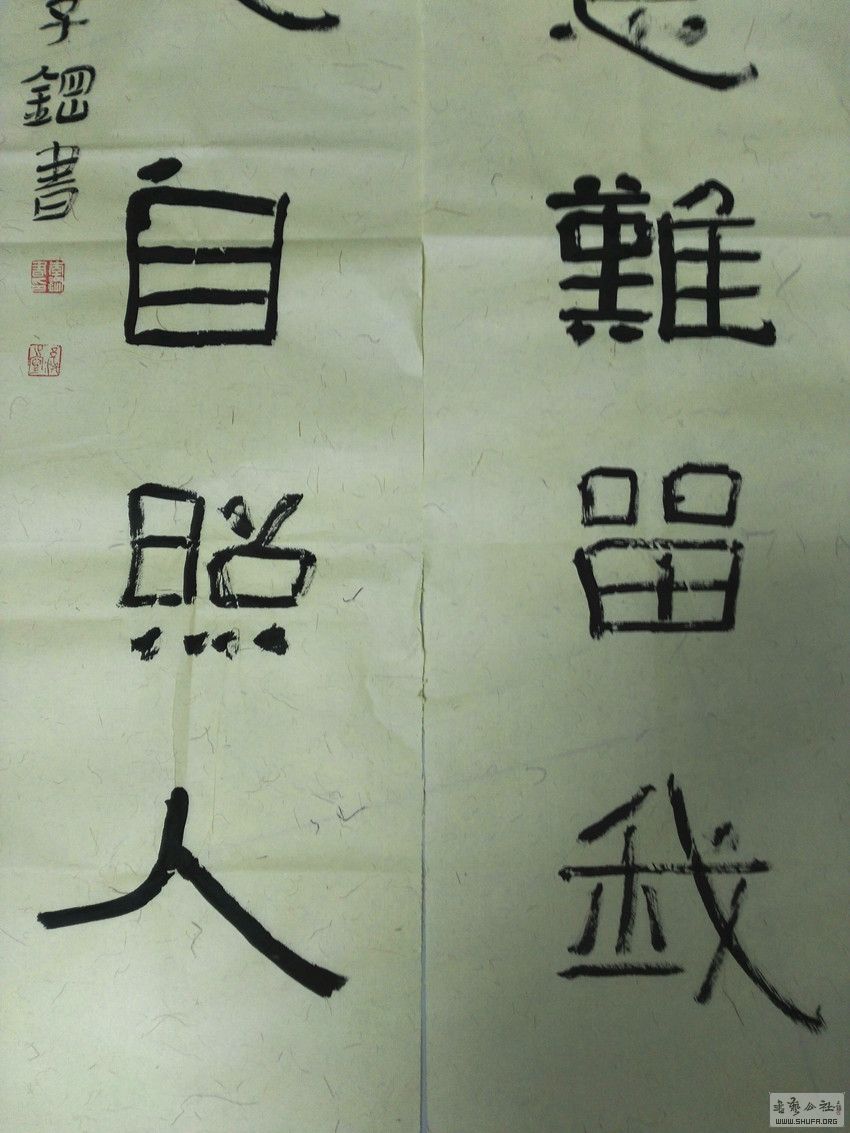 難留我
自照人
鋼書
書藝公社
WWW.SHUFA.ORG